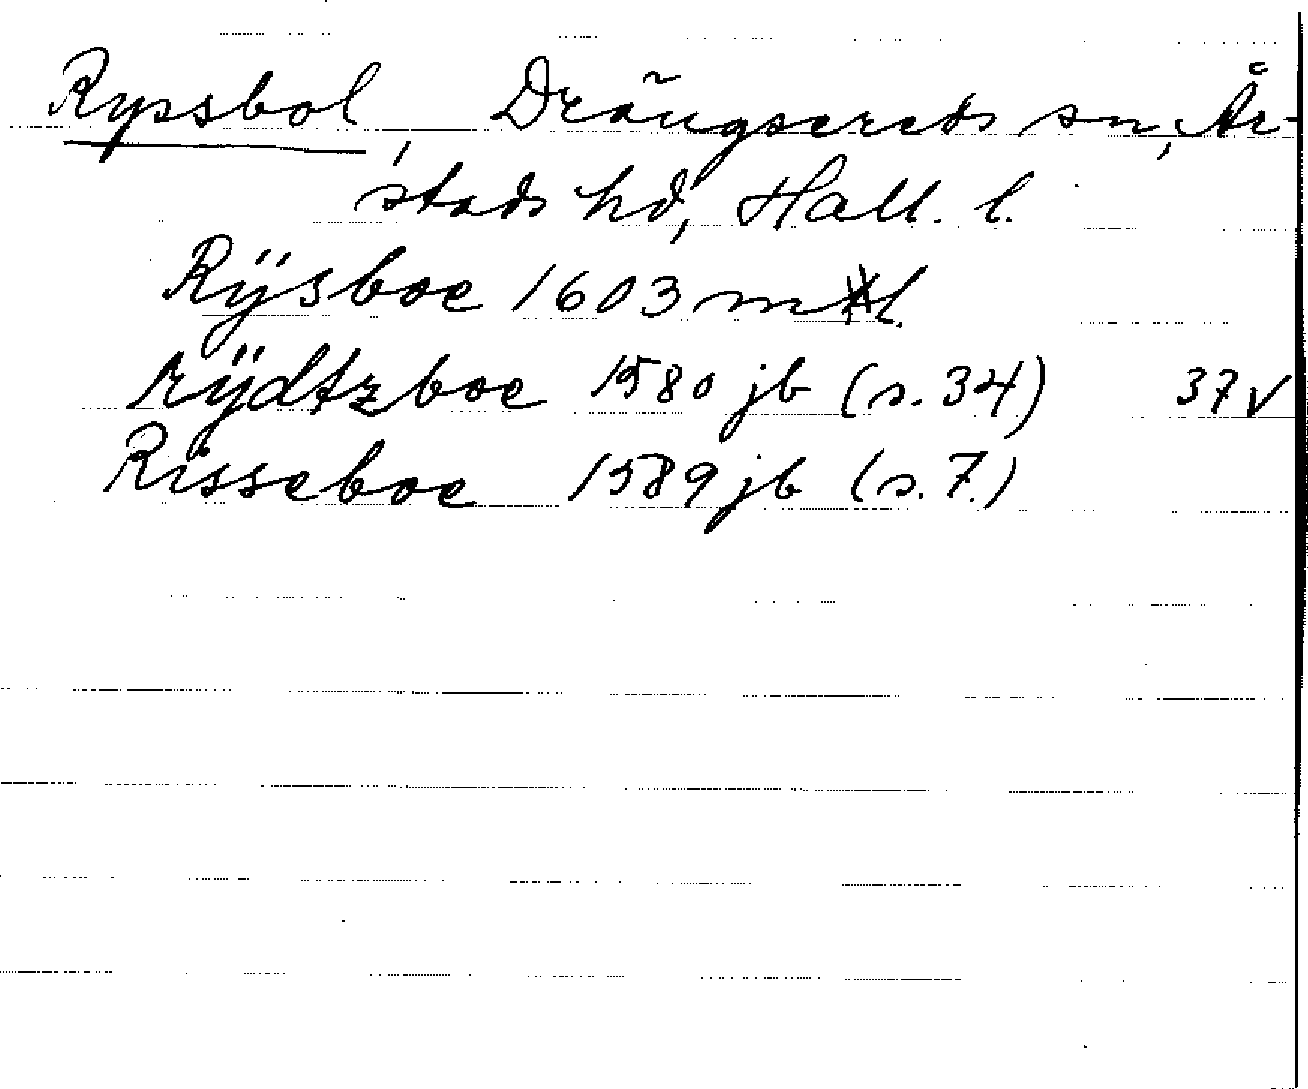 Ryssbol, Drängsereds sn, År-
stads hd, Hall. l.
Rÿsboe 1603 ml.
rÿdtzboe 1580 jb (s. 34) 37v
Risseboe 1589 jb (s. 7.)